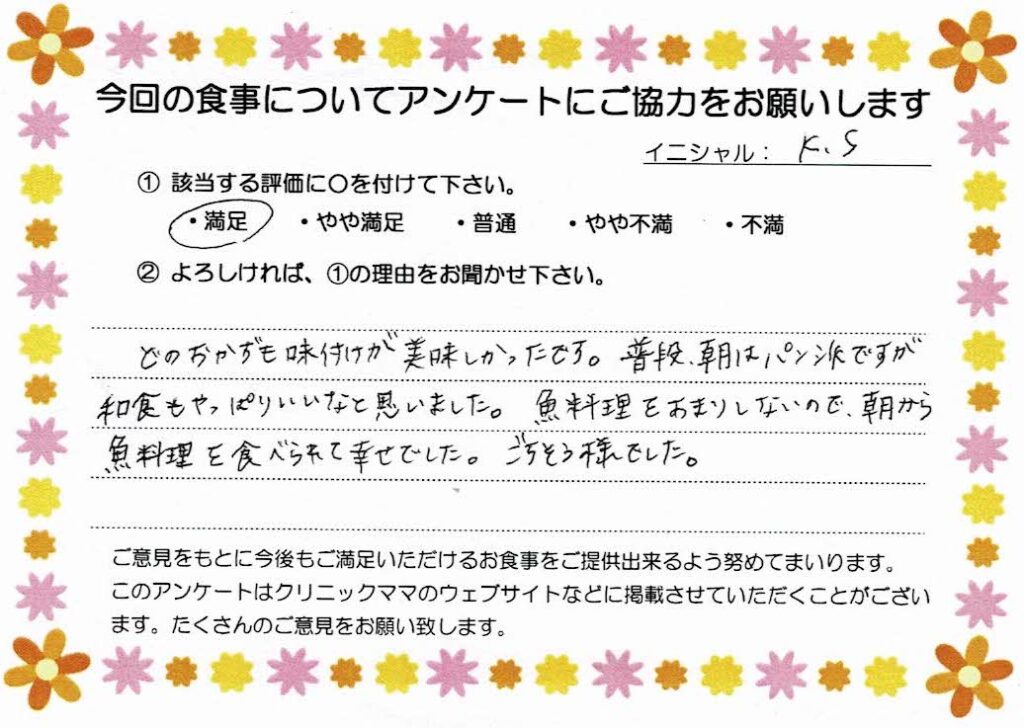 今回の食事についてアンケートにご協力をお願いします
イニシャル： K.S
① 該当する評価に〇を付けて下さい。
・満足 ・やや満足 ・普通 ・やや不満 ・不満
② よろしければ、①の理由をお聞かせ下さい。
どのおかずも味付けが美味しかったです。普段、朝はパン派ですが
和食もやっぱりいいなと思いました。魚料理をあまりしないので、朝から
魚料理を食べられて幸せでした。ごちそう様でした。
ご意見をもとに今後もご満足いただけるお食事をご提供出来るよう努めてまいります。
このアンケートはクリニックママのウェブサイトなどに掲載させていただくことがござい
ます。たくさんのご意見をお願い致します。